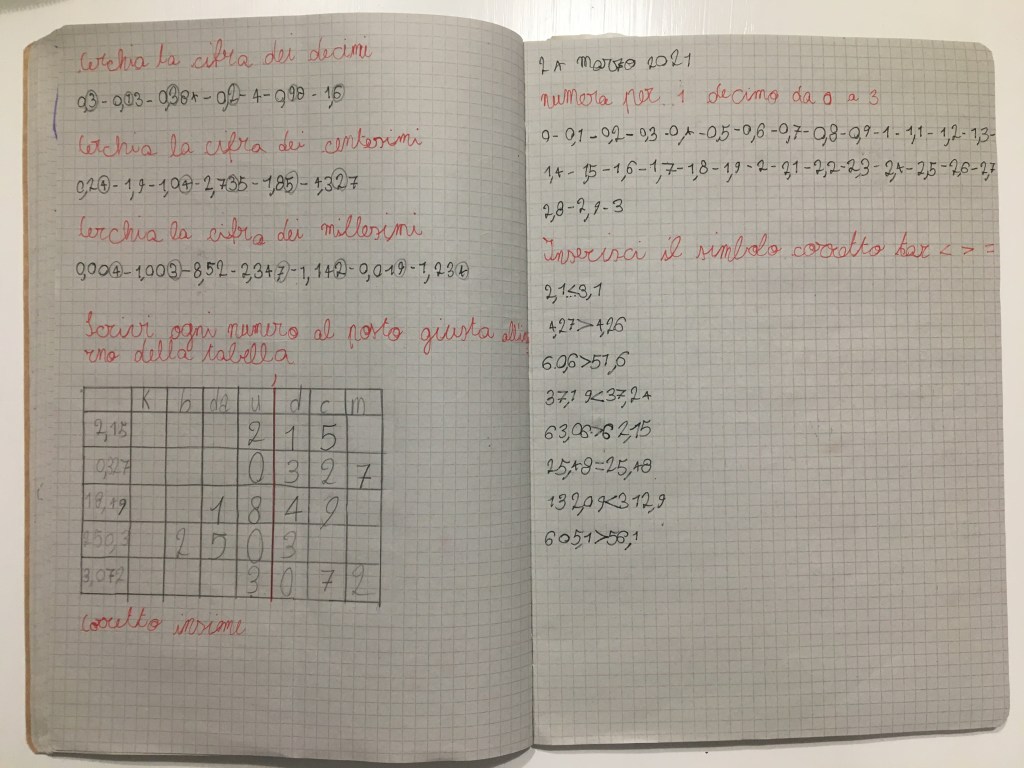 Cerchia la cifra dei decimi
0,3 - 0,03 - 0,384 - 0,2 - 4 - 0,98 - 1,6
Cerchia la cifra dei centesimi
0,24 - 1,9 - 1,04 - 2,735 - 1,85 - 4,327
Cerchia la cifra dei millesimi
0,004 - 1,003 - 8,52 - 2,347 - 1,142 - 0,019 - 1,234
Scrivi ogni numero al posto giusto all'inte
rno della tabella
,
K h da u d c m
2,15 2 1 5
0,327 0 3 2 7
18,49 1 8 4 9
250,3 2 5 0 3
3,072 3 0 7 2
corretto insime
24 marzo 2021
numera per 1 decimo da 0 a 3
0 - 0,1 - 0,2 - 0,3 - 0,4 - 0,5 - 0,6 - 0,7 - 0,8 - 0,9 - 1 - 1,1 - 1,2 - 1,3 -
1,4 - 1,5 - 1,6 - 1,7 - 1,8 - 1,9 - 2 - 2,1 - 2,2 - 2,3 - 2,4 - 2,5 - 2,6 - 2,7
2,8 - 2,9 - 3
Inserisci il simbolo corretto tar < > =
2,1<3,1
4,27>4,26
60,6>51,6
37,19<37,24
63,08>62,15
25,48=25,48
132,09<312,9
605,1>58,1